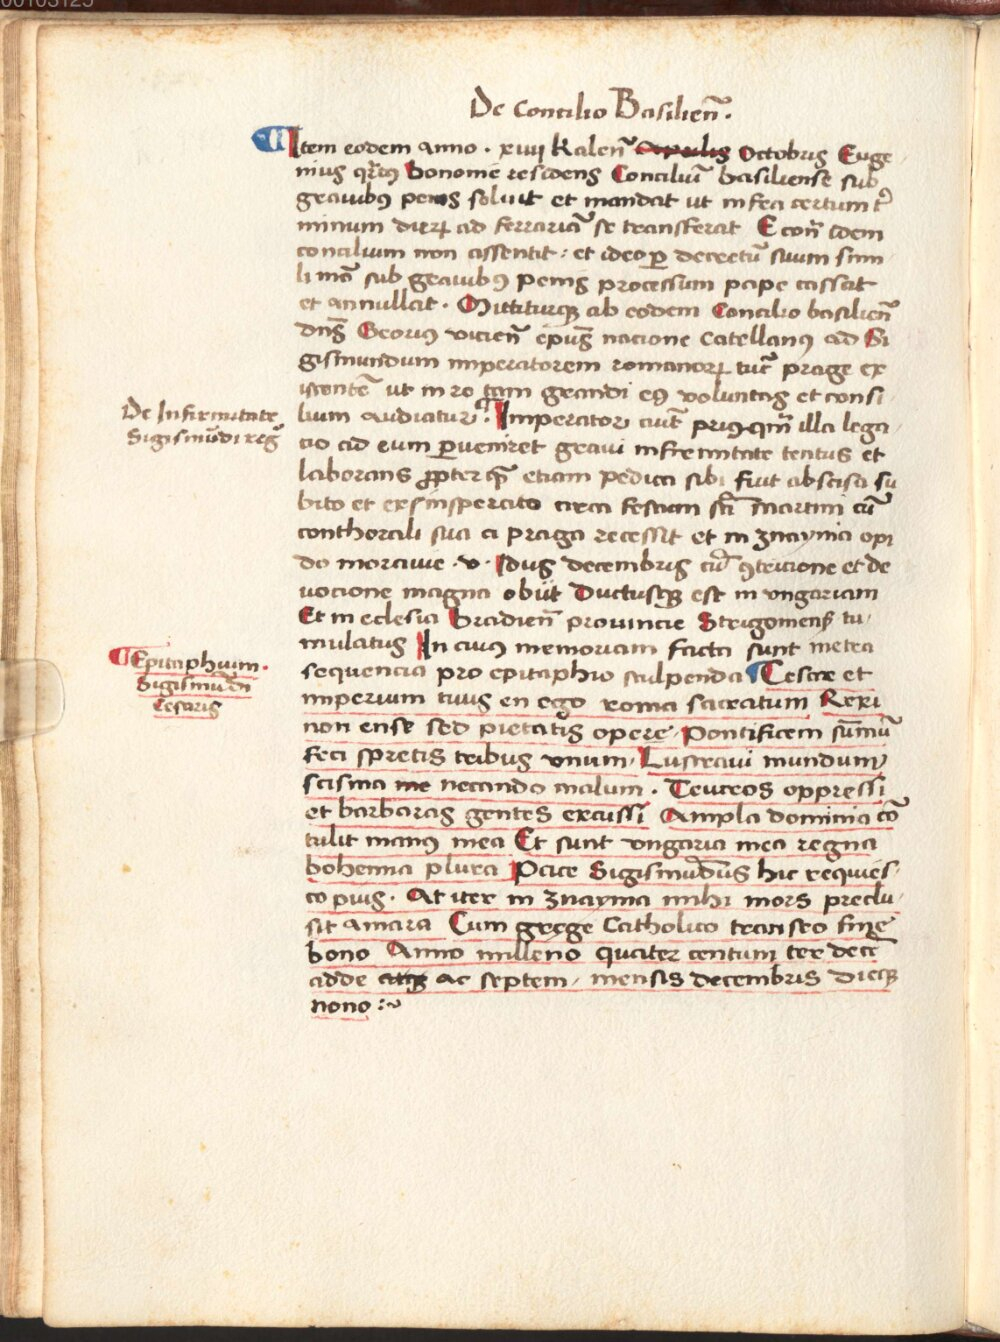 00103125
De Concilio Basilien̄.
Item eodem anno . xiiij Kalen̄ Aprilis Octobris Euge
nius qrtꝰ Bononie residens Conciliū basiliense sub
grauibꝰ penis soluit et mandat ut infra certum t̄
minum dierꝝ ad ferrariā se transferat E con̄ idem
concilium non assentit : et ideo ꝑ decretū suum simi
li mā sub grauibꝰ penis processum pape cassat
et annullat . Mittiturqꝫ ab eodem Concilio basilien̄
dn̄s Georiꝰ vicien̄ ep̄us nacione Catellanꝰ ad Si
gismundum imperatorem romanorꝝ tūc prage ex
istentē ut in re tam grandi eꝰ voluntas et consi
lium audiatur .
De Infirmitate
Sigismūdi reḡ
Imperator aut̄ priꝰqm̄ illa lega
cio ad eum ꝑueniret graui infirmitate tentus et
laborans ꝓpter qd̄ etiam pedica sibi fuit abscisa su
bito et ex insperato circa festum sc̄i martini cū
conthorali sua a praga recessit et in znayma opi
do morauie . v . Idus decembris cū ꝯtricione et de
uocione magna obijt Ductusqꝫ est in vngariam
Et in eclesia Vradien̄ prouincie Strigomens̄ tu
mulatus In cuiꝰ memoriam facta sunt metra
sequencia pro epitaphio sculpenda
Epitaphium .
Sigismūdi
Cesaris
Cesar et
imperium tuus en ego roma sacratum Rexi
non ense sed pietatis opere Pontificem sūmū
feci spretis tribus vnum Lustraui mundum
scisma me necando malum . Teucros oppressi
et barbaras gentes excussi Ampla dominia cō
tulit manꝰ mea Et sunt vngaria mea regna
bohemia plura Pace Sigismūdus hic requies
co pius . At iter in znayma mihi mors preclu
sit amara Cum grege Catholico transeo fine
bono Anno milleno quater centum ter decē
adde ac septem mensis decembris dieqꝫ
nono :~